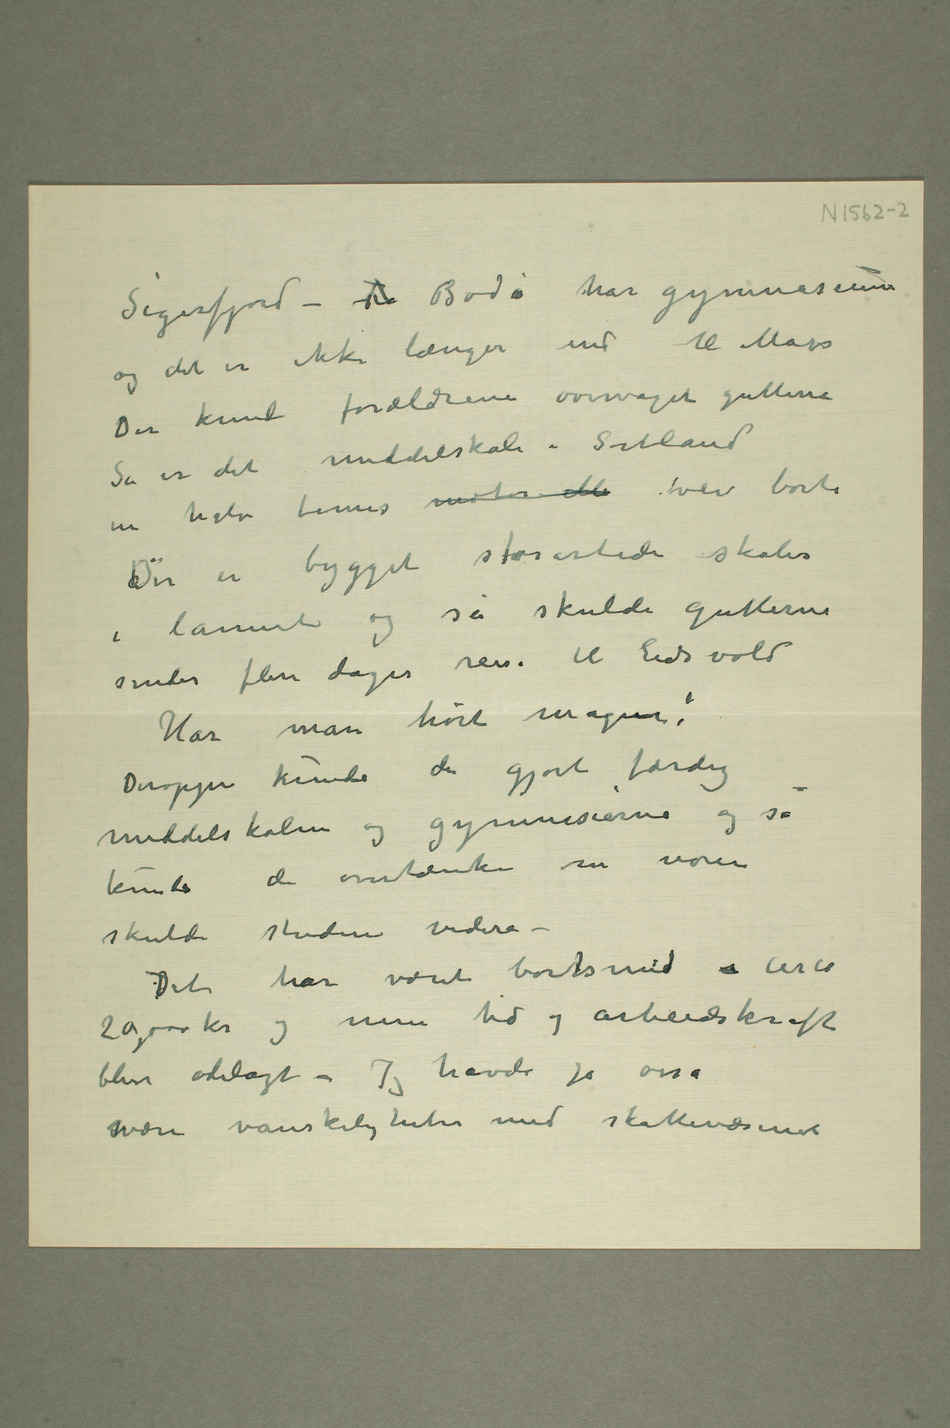 N1562-2
Sigerfjord – Bodø har gymnasium
og det er ikke længer end til Moss
Der kunde forældrene overvaget gutterne
Så er det middelskole i Sortland
en halv times motor elle vei borte
Der er bygget storartede skoler
i lannet og så skulde gutterne
sendes flere dages reise til Eidsvold
Har man hørt magen!
Deroppe kunde de gjort færdig
middelskolen og gymnasierne og så
kunde de overtænke om noen
skulde studere videre –
Det har været bortsmid circa
20,000 kr og min tid og arbeidskraft
blev ødelagt – Jeg havde jo osså
svære vanskeligheter med skattevæsenet